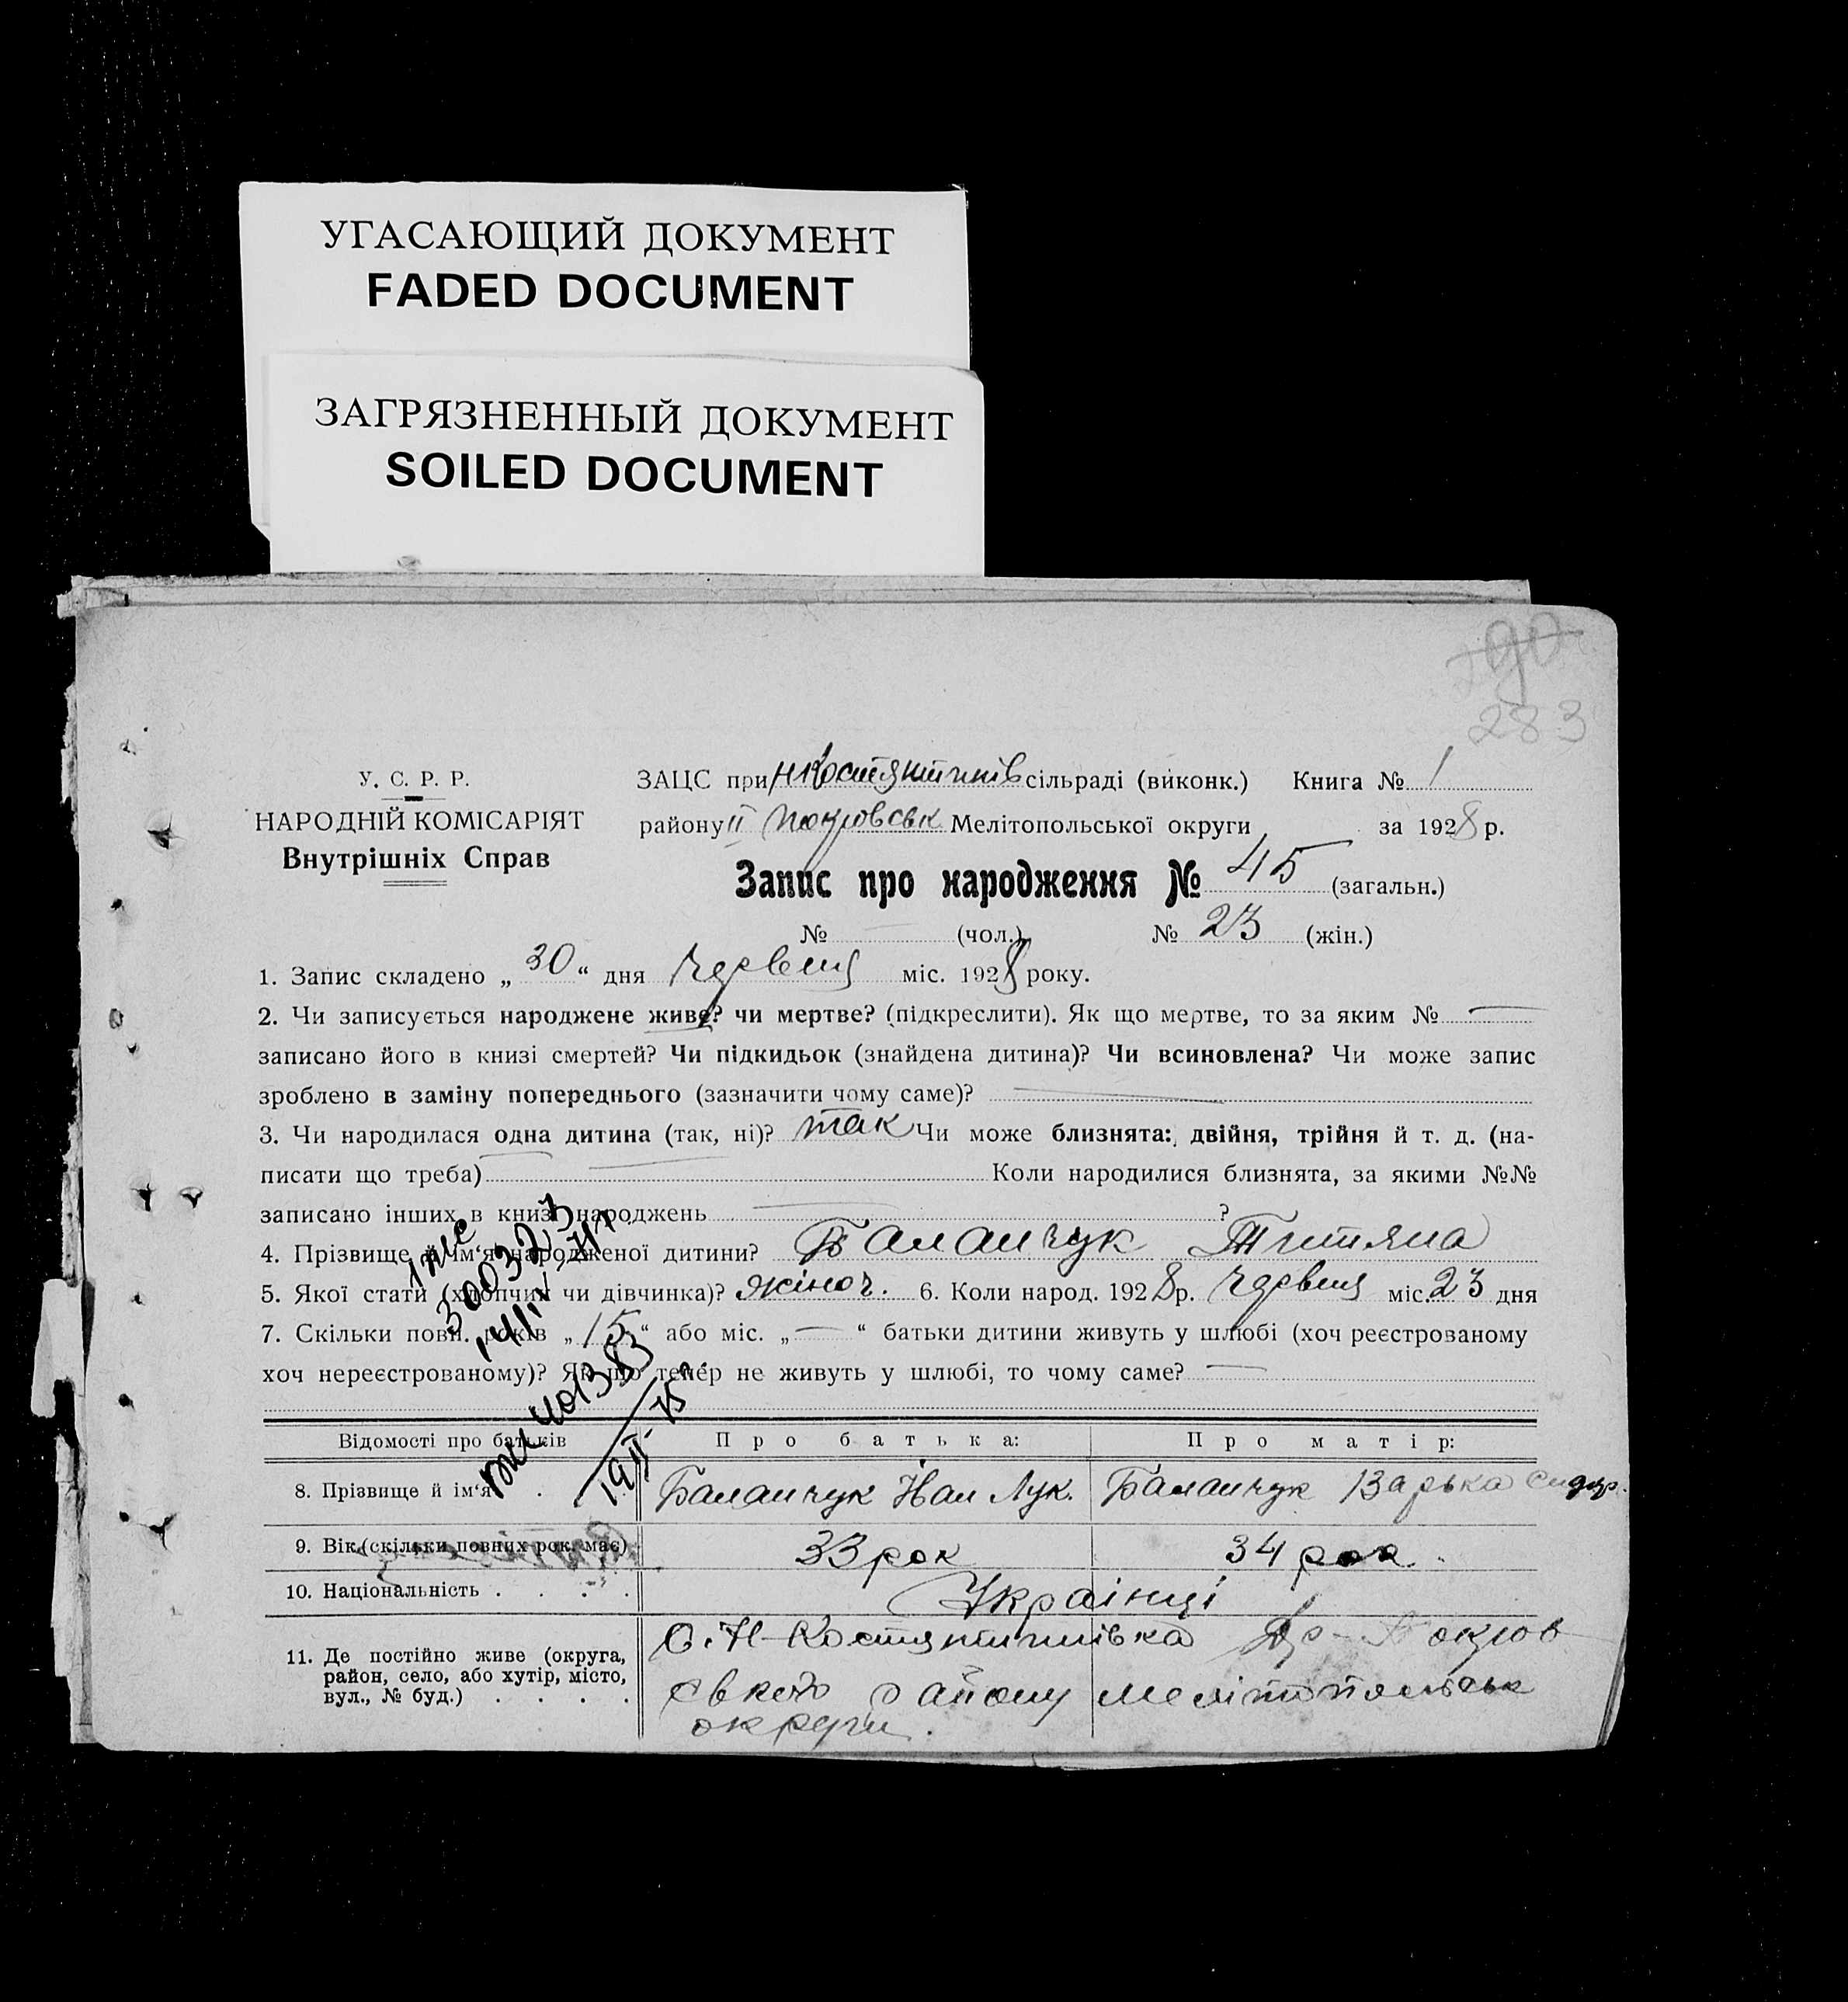 УГАСАЮЩИЙ ДОКУМЕНТ
FADED DOCUMENT
ЗАГРЯЗНЕННЫЙ ДОКУМЕНТ
SOILED DOCUMENT
90
283
У. С. Р. Р.
НАРОДНІЙ КОМІСАРІЯТ
Внутрішніх Справ
ЗАЦС при сільраді (виконк.) Книга № 1
району II Покровськ Мелітопольської округи за 1928 р.
Запис про народження № 45 (загальн.)
№ — (чол.) № 23 (жін.)
1. Запис складено „ 30 “ дня червня міс. 1928 року.
2. Чи записується народжене живе? чи мертве? (підкреслити). Як що мертве, то за яким № —
записано його в книзі смертей? Чи підкидьок (знайдена дитина)? Чи всиновлена? Чи може запис
зроблено в заміну попереднього (зазначити чому саме)? —
3. Чи народилася одна дитина (так, ні)? так Чи може близнята: двійня, трійня й т. д. (на-
писати що треба) — Коли народилися близнята, за якими №№
записано інших в книзі народжень — ?
4. Прізвище й ім‘я народженої дитини? Баланчук
5. Якої стати (хлопчик чи дівчинка)? жіноч. 6. Коли народ. 1928 р. червня міс. 23 дня
7. Скільки повн. років „ 15 “ або міс. „ — “ батьки дитини живуть у шлюбі (хоч реєстрованому
хоч нереєстрованому)? Як що тепер не живуть у шлюбі, то чому саме? —
300323
401383
Відомості про батьків Про батька: Про матір:
8. Прізвище й ім‘я . . Баланчук Іван Лук. Баланчук Варька Сидор.
9. Вік (скільки повних рок. має) 33 рок 34 рок
10. Національність . . . . Українці
11. Де постійно живе (округа,
район, село, або хутір, місто,
вул., № буд.) . . . .
С. Н-Костянтинівка Покров
ського району Мелітопольськ
округи.